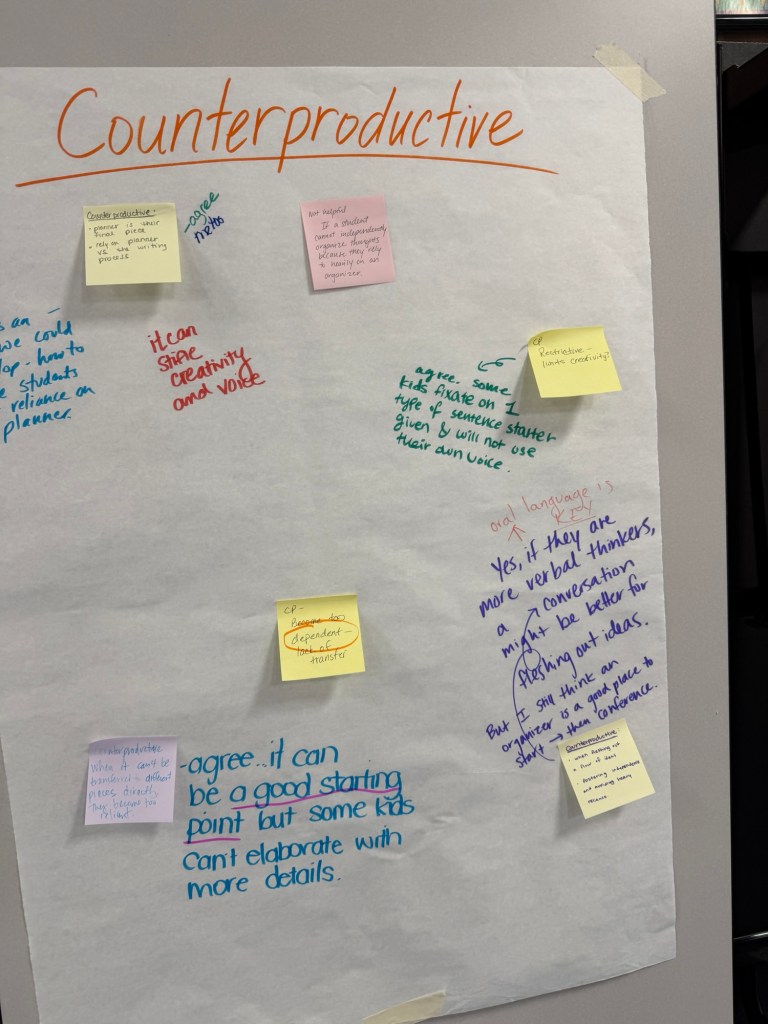 Counterproductive
Counterproductive:
- planner is their
final piece
• rely on planner
vs the writing
process
-agree
me too
Not helpful
If a student
cannot independently
organize thoughts
because they rely
to heavily on an
organizer.
s an –
we could
op - how to
e students
reliance on
planner.
it can
stifle
creativity
and voice
CP
Restrictive –
limits creativity?
agree. some
kids fixate on 1
type of sentence starter
given & will not use
their own voice.
oral language is
KEY
Yes, if they are
more verbal thinkers,
a conversation
might be better for
fleshing out ideas.
But I still think an
organizer is a good place to
start → then conference.
CP -
Become too
dependent –
lack of
transfer
Counterproductive
When it can't be
transferred to different
pieces directly
- they become too
reliant.
-agree..it can
be a good starting
point but some kids
can't elaborate with
more details.
Counterproductive:
• when getting out
a flow of ideas
• fostering independence
and avoiding heavy
reliance